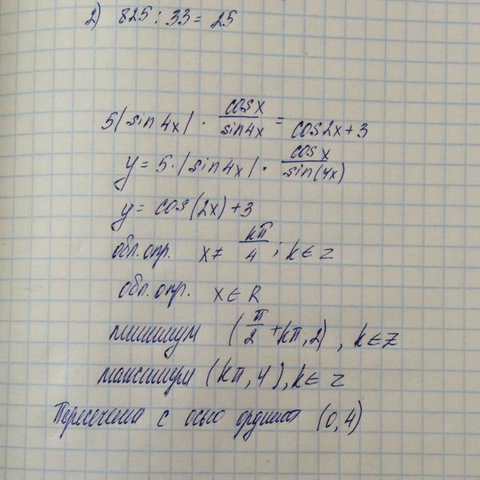 2) 825 : 33 = 25
5|sin 4x| · cos x / sin 4x = cos 2x + 3
y = 5 · |sin 4x| · cos x / sin(4x)
y = cos(2x) + 3
обл. опр. x ≠ kπ/4 ; k ∈ z
обл. опр. x ∈ R
минимум (π/2 + kπ, 2), k ∈ Z
максимум (kπ, 4), k ∈ z
Пересечения с осью ординат (0, 4)